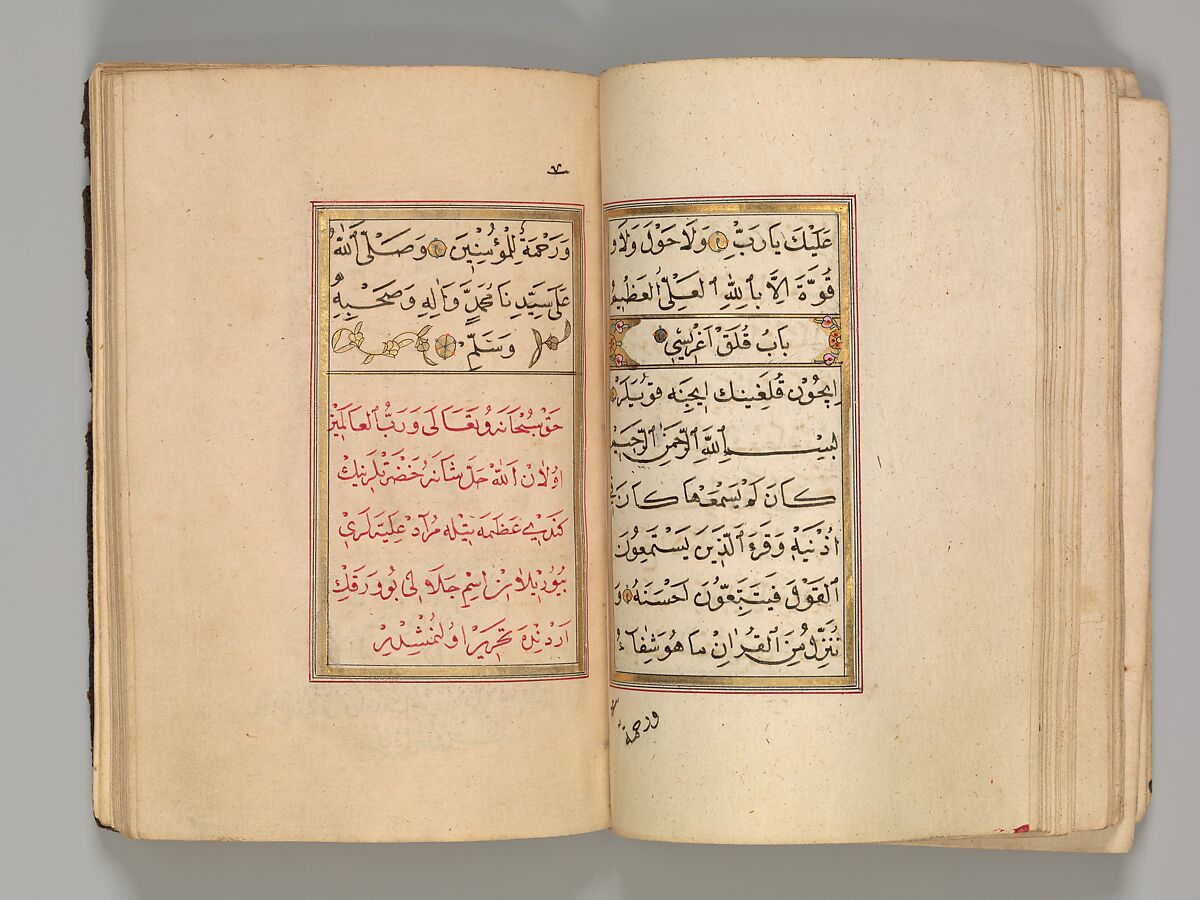 عَلَيْكَ يَا رَبِّ وَلَا حَوْلَ وَلَا و
قُوَّةَ اِلَّا بِاللهِ الْعَلِىِّ الْعَظِيمِ
بَابُ قُلَقْ اَغْرِيسِي
اِيچُونْ قُلَغِينِكْ اِيچِنَه
بِسْــمِ اللهِ الرَّحْمَنِ الرَّحِيمِ
كَانَ لَمْ يَسْمَعْهَا كَانَ
اُذُنَيْهِ وَقْرًا اَلَّذِينَ يَسْتَمِعُونَ
الْقَوْلَ فَيَتَّبِعُونَ اَحْسَنَهُ وَ
نُنَزِّلُ مِنَ الْقُرْاٰنِ مَا هُوَ شِفَاۤءٌ
ورحمة
٧
وَرَحْمَةٌ لِلْمُؤْمِنِينَ وَصَلَّى اللهُ
عَلَى سَيِّدِنَا مُحَمَّدٍ وَاٰلِهِ وَصَحْبِهِ
وَسَلَّمَ
حَقْ سُبْحَانَهُ وَتَعَالَى وَرَبُّ الْعَالَمِينَ
اُولَانْ اَللهُ جَلَّ شَانُهُ حَضْرَتْلَرِينِكْ
كَنْدِي عَظَمَه مُرَادْ عَلِيَّه لَرِي
بُيُورِيلَانْ اِسْمِ جَلَالِى بُو وَرَقِكْ
اَرْدِنْدَه تَحْرِيرْ اُولُنْمُشْدِرْ